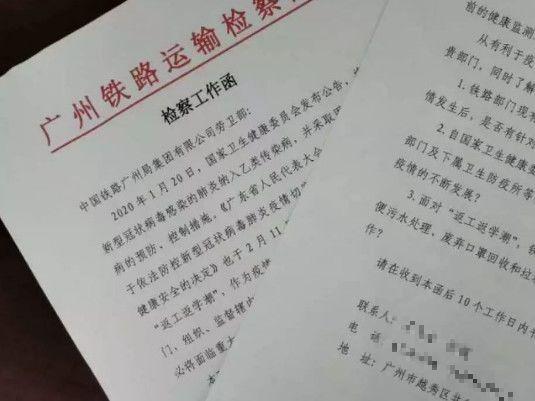 广州铁路运输检察
检察工作函
中国铁路广州局集团有限公司劳卫部：
2020年1月20日，国家卫生健康委员会发布公告，
新型冠状病毒感染的肺炎纳入乙类传染病，并采取
病的预防、控制措施。《广东省人民代表大会
于依法防控新型冠状病毒肺炎疫情切
健康安全的决定》也于2月11
“返工返学潮”，作为疫
门、组织、监督辖
必将面临重大
前的健康监测
从有利于疫
贵部门，同时了解
1.铁路部门现有
情发生后，是否有针对
2.自国家卫生健康委
部门及下属卫生防疫所等
疫情的不断发展？
3.面对“返工返学潮”，
便污水处理，废弃口罩回收和垃
作？
请在收到本函后10个工作日内
联系人：
电 话：
地 址：广州市越秀区